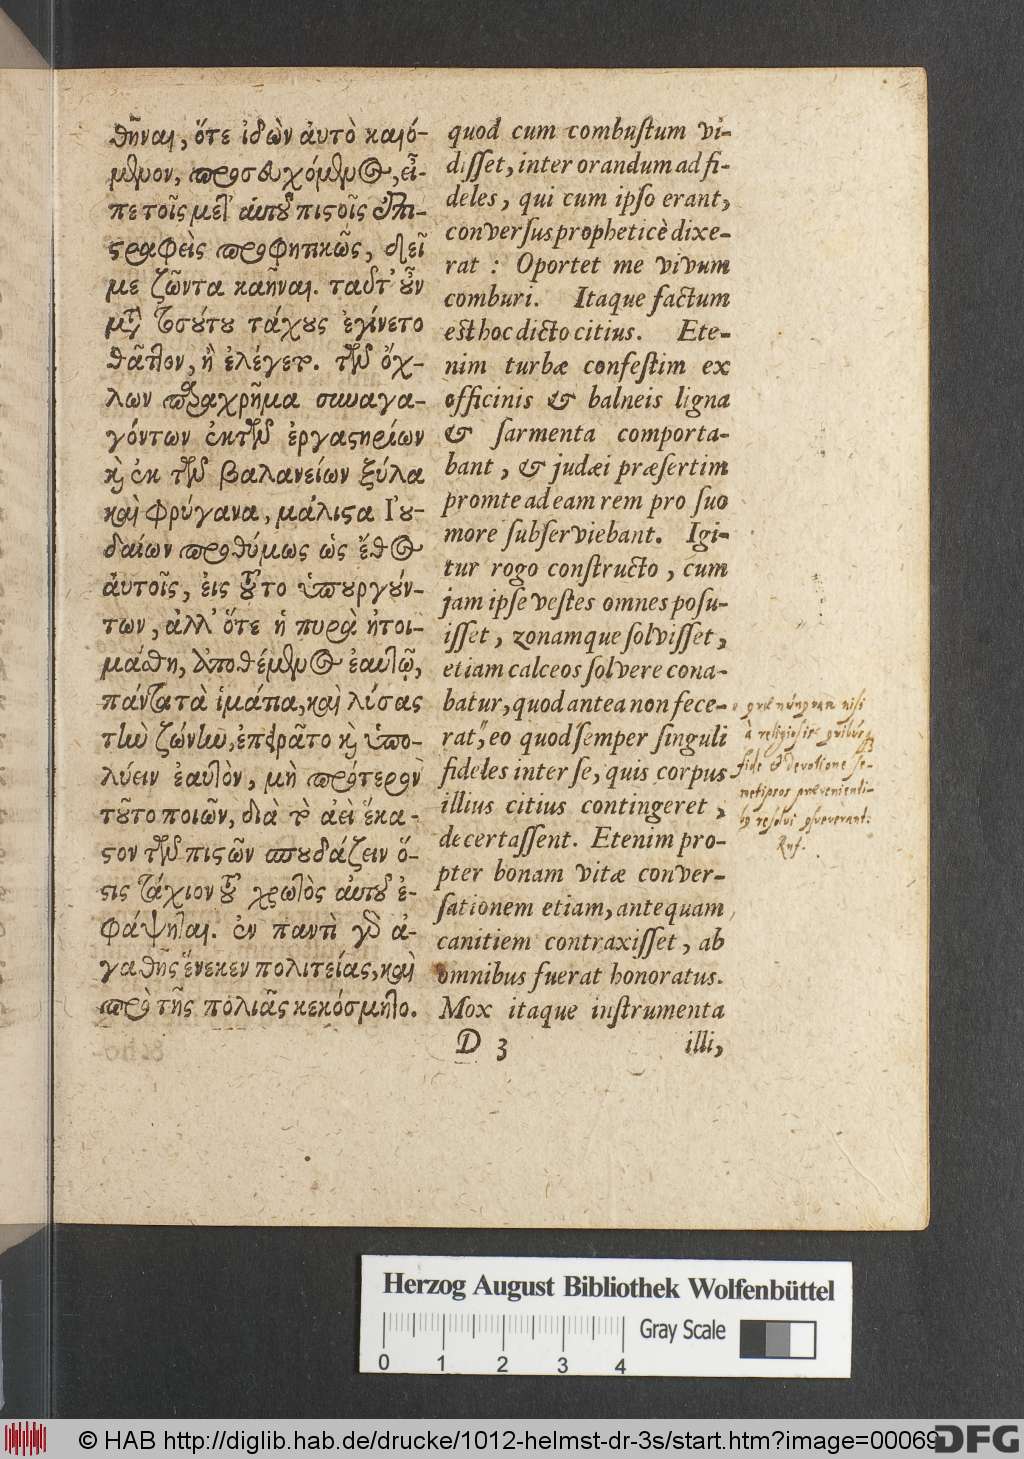 θῆναι, ὅτε ἰδὼν ἀυτὸ καιό-
μθμον, προσευχόμθμος, εἶ-
πε τοῖς μετ' ἀυτοῦ πιστοῖς ἐπι-
στραφεὶς προφητικῶς, δεῖ
με ζῶντα καῆναι. ταῦτ' οὖν
μετὰ τοσούτου τάχους ἐγίνετο
θᾶττον, ἢ ἐλέγετο. τῶν ὄχ-
λων παραχρῆμα συναγα-
γόντων ἐκ τῶν ἐργαστηρίων
καὶ ἐκ τῶν βαλανείων ξύλα
καὶ φρύγανα, μάλιστα Ἰου-
δαίων προθύμως ὡς ἔθος
ἀυτοῖς, ἐις τοῦτο ὑπουργούν-
των, ἀλλ' ὅτε ἡ πυρὰ ἡτοι-
μάσθη, ἀποθέμενος ἑαυτῷ,
πάντα τὰ ἱμάτια, καὶ λύσας
τὴν ζώνην, ἐπειρᾶτο καὶ ὑπο-
λύειν ἑαυτὸν, μὴ πρότερον
τοῦτο ποιῶν, διὰ τὸ ἀεὶ ἕκα-
στον τῶν πιστῶν σπουδάζειν ὅ-
στις τάχιον τοῦ χρωτὸς ἀυτοῦ ἐ-
φάψηται. ἐν παντὶ γὰρ ἀ-
γαθῆς ἕνεκεν πολιτείας, καὶ
πρὸ τῆς πολιᾶς κεκόσμητο.
quod cum combustum vi-
disset, inter orandum ad fi-
deles, qui cum ipso erant,
conversus propheticè dixe-
rat : Oportet me vivum
comburi. Itaque factum
est hoc dicto citius. Ete-
nim turbæ confestim ex
officinis & balneis ligna
& sarmenta comporta-
bant, & judæi præsertim
promte ad eam rem pro suo
more subserviebant. Igi-
tur rogo constructo, cum
jam ipse vestes omnes posu-
isset, zonamque solvisset,
etiam calceos solvere cona-
batur, quod antea non fece-
rat, eo quod semper singuli
fideles inter se, quis corpus
illius citius contingeret,
decertassent. Etenim pro-
pter bonam vitæ conver-
sationem etiam, antequam
canitiem contraxisset, ab
omnibus fuerat honoratus.
Mox itaque instrumenta
D 3 illi,
quæ nunquam nisi
à religiosis quibusq
fide & devotione se-
metipsos prævenienti-
resolvi
Ruf.
Herzog August Bibliothek Wolfenbüttel
0 1 2 3 4 Gray Scale
© HAB http://diglib.hab.de/drucke/1012-helmst-dr-3s/start.htm?image=00069
DFG